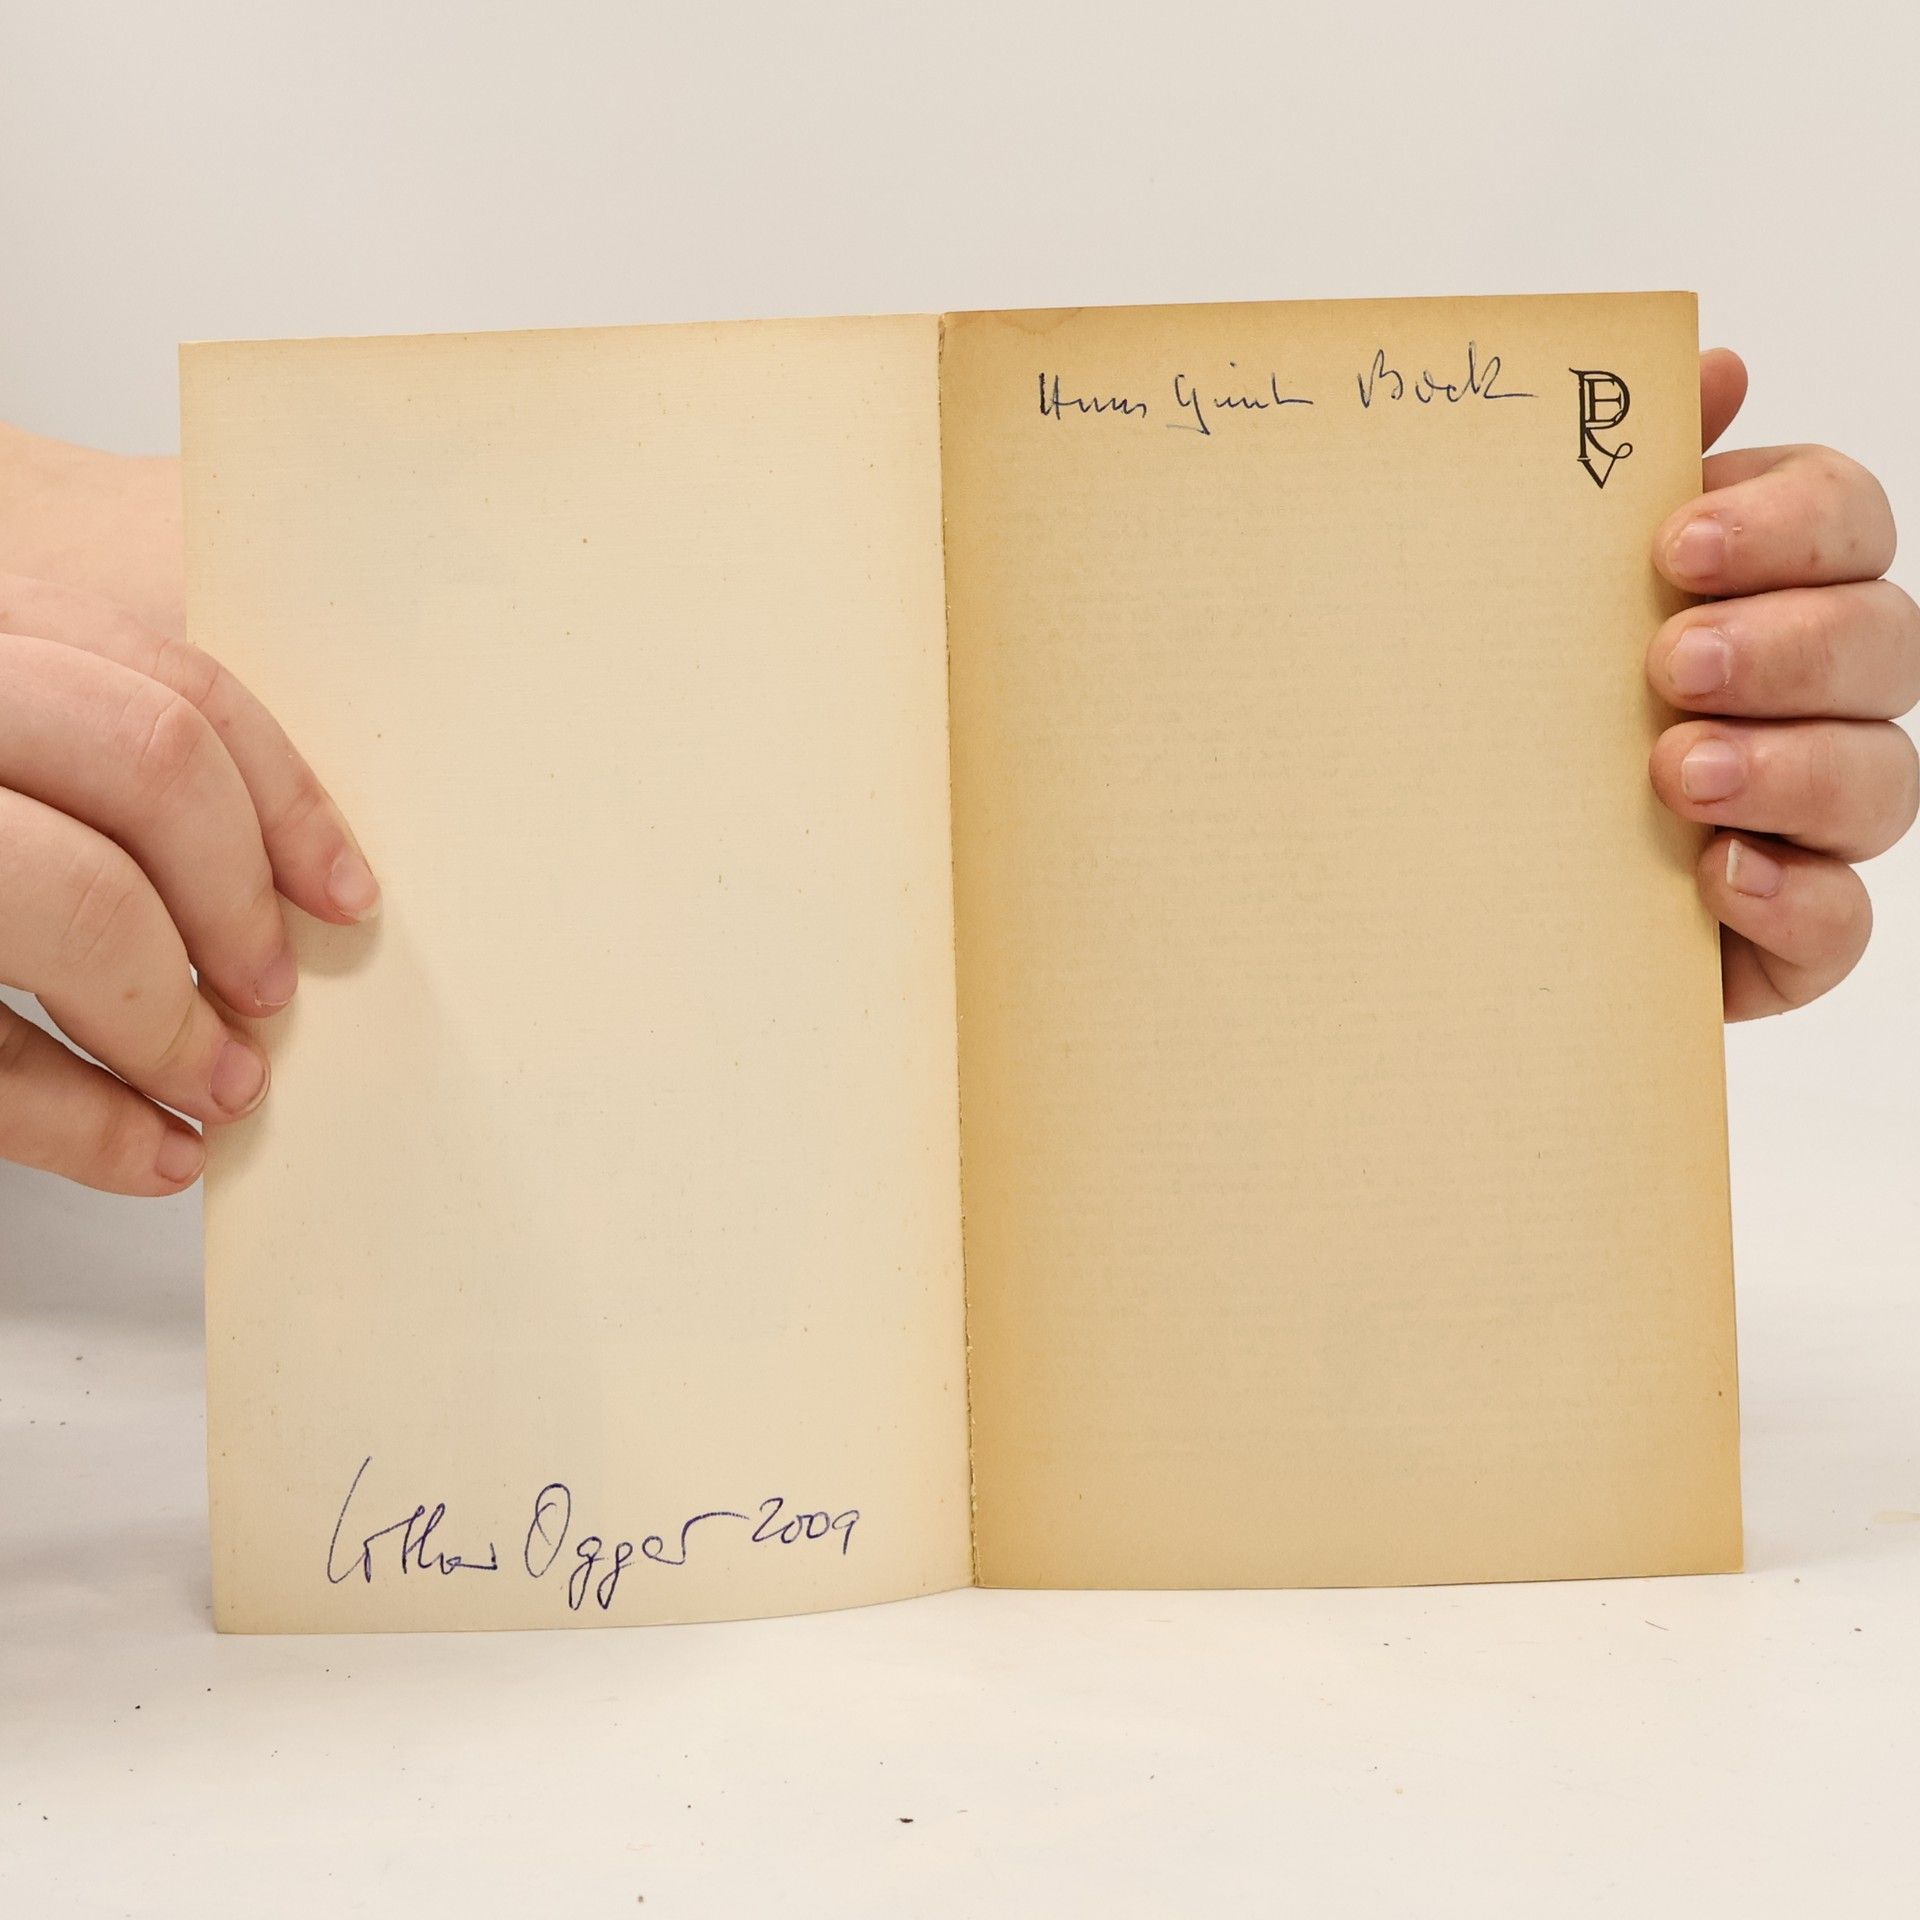 Lothar Ogger 2009
Hans Günth Bock